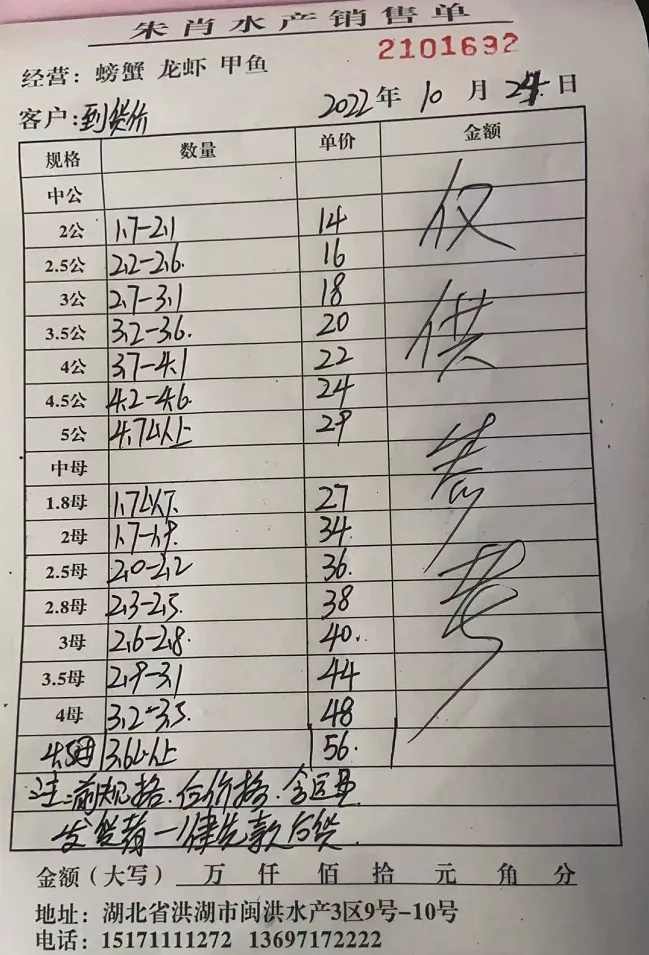 朱肖水产销售单
2101692
经营: 螃蟹 龙虾 甲鱼
客户:到货价 2022年 10月 24日
规格 数量 单价 金额
中公
2公 1.7-2.1 14
2.5公 2.2-2.6. 16
3公 2.7-3.1 18
3.5公 3.2-3.6. 20
4公 3.7-4.1 22
4.5公 4.2-4.6. 24
5公 4.7以上 29
中母
1.8母 1.7以下. 27
2母 1.7-1.9. 34
2.5母 2.0-2.2 36.
2.8母 2.3-2.5. 38
3母 2.6-2.8. 40.
3.5母 2.9-3.1 44
4母 3.2-3.5. 48
4.5母 3.6以上 56.
仅供参考
注:前规格.后价格.含运费
发货前一律先款后货.
金额(大写) 万 仟 佰 拾 元 角 分
地址: 湖北省洪湖市闽洪水产3区9号-10号
电话: 15171111272 13697172222